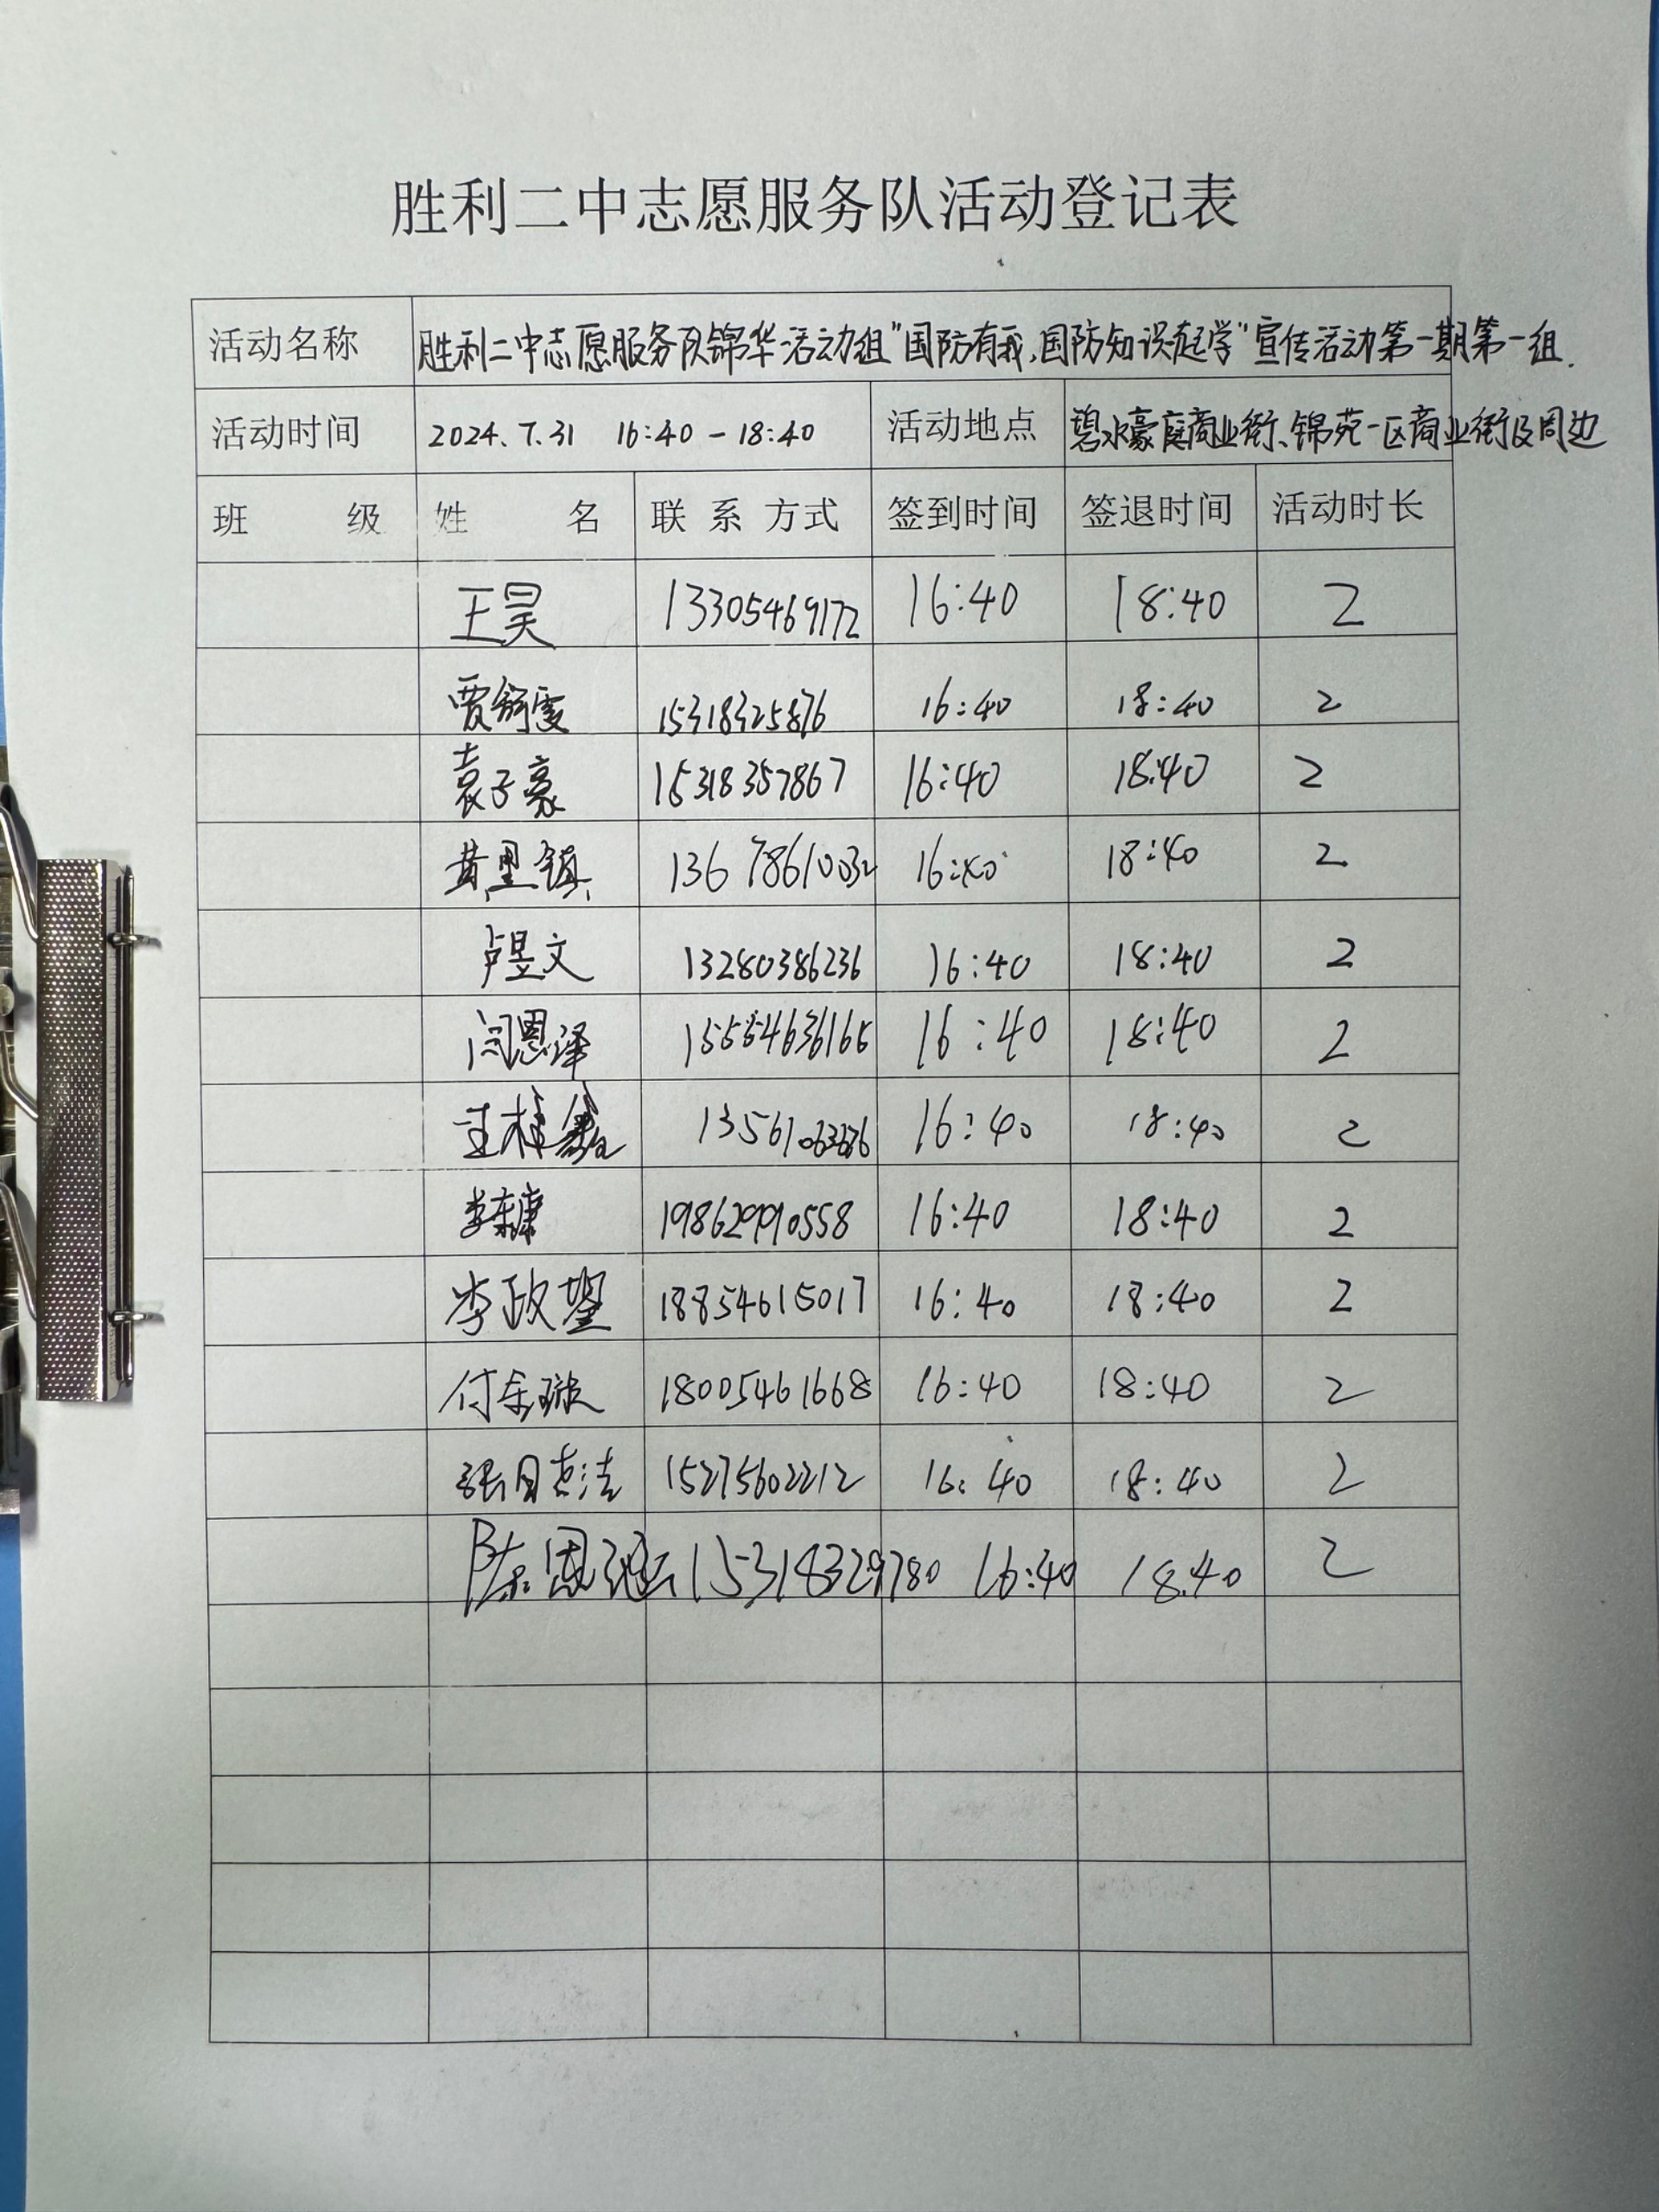 胜利二中志愿服务队活动登记表
活动名称 胜利二中志愿服务队锦华活动组"国防有我,国防知识一起学"宣传活动第一期第一组.
活动时间 2024.7.31 16:40-18:40 活动地点 碧水豪庭商业街、锦苑一区商业街及周边
班 级 姓 名 联系方式 签到时间 签退时间 活动时长
王昊 13305469172 16:40 18:40 2
贾舒雯 15318325876 16:40 18:40 2
袁子豪 15318357867 16:40 18:40 2
黄里镇 13678610032 16:40 18:40 2
卢昱文 13280386236 16:40 18:40 2
闫恩泽 15554636165 16:40 18:40 2
13561063676 16:40 18:40 2
李东康 19862990558 16:40 18:40 2
李政 18854615017 16:40 18:40 2
付金璇 18005461668 16:40 18:40 2
张 15275602212 16:40 18:40 2
陈恩 15318329780 16:40 18.40 2